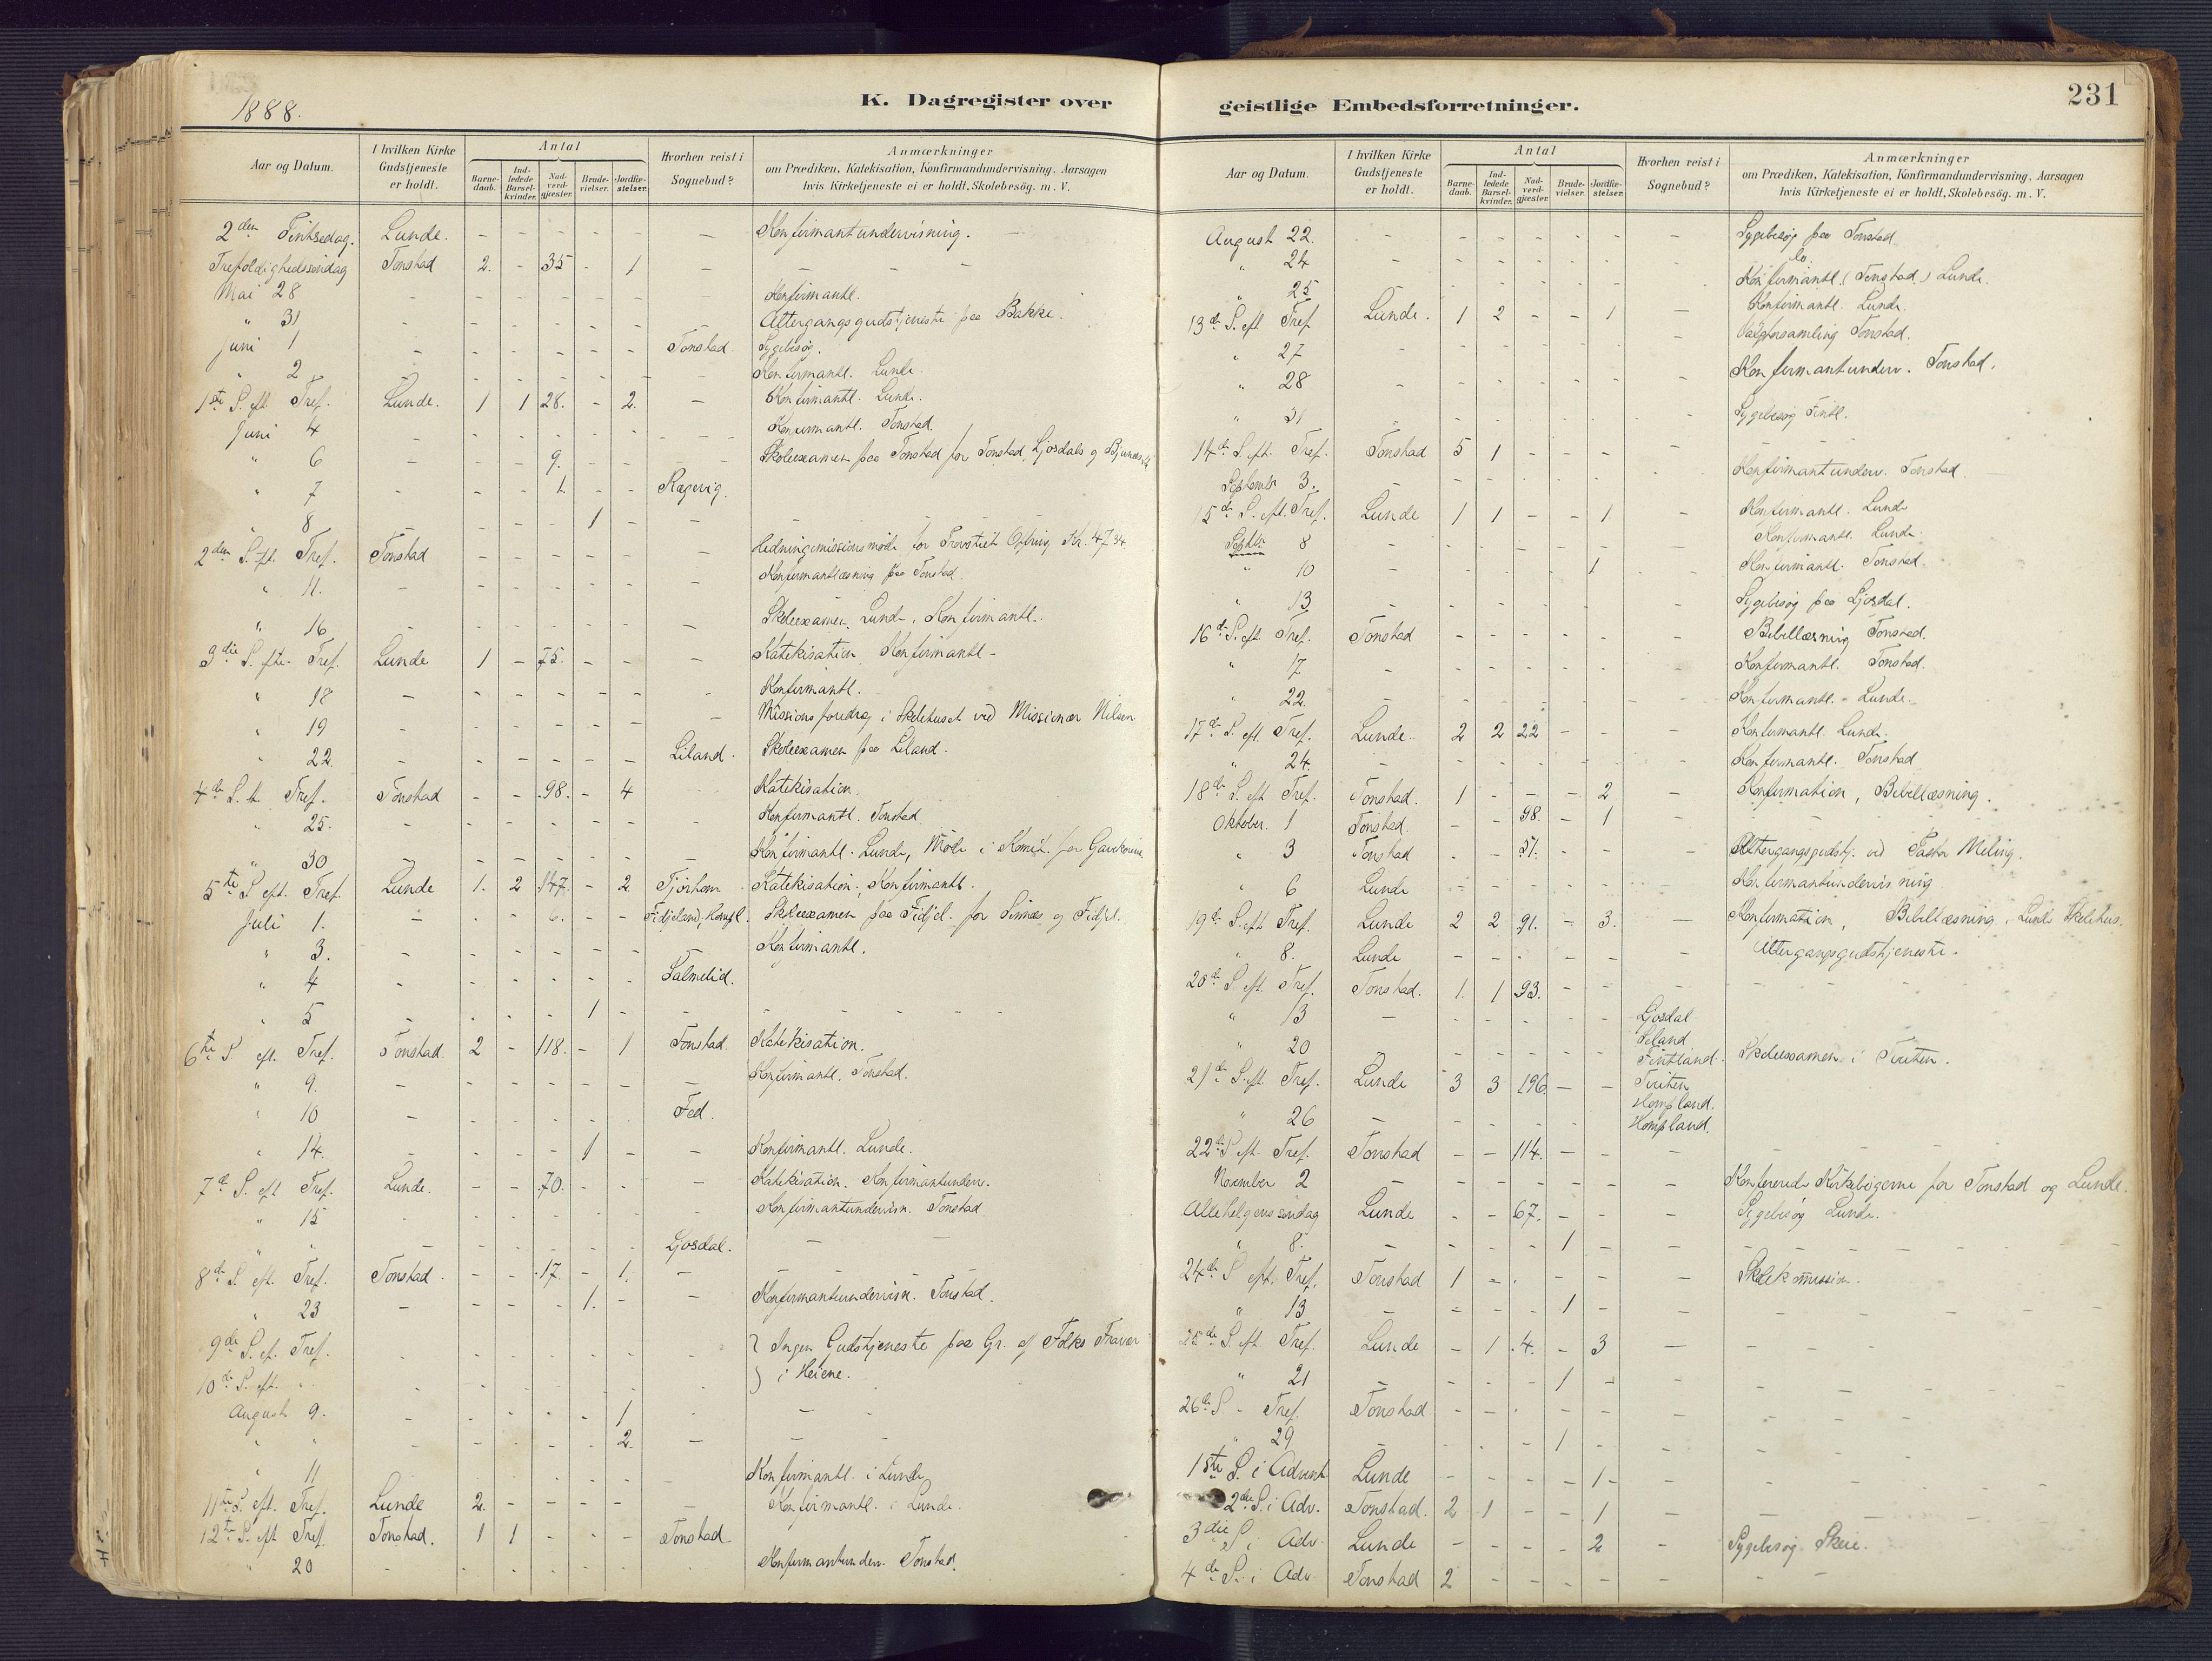 1888.
K. Dagregister over
Aar og Datum.
I hvilken Kirke Gudstjeneste er holdt.
Antal
Barne-daab.
Ind-ledede Barsel-kvinder.
Nad-verd-gjæster.
Brude-vielser.
Jordfæ-stelser.
Hvorhen reist i Sognebud?
Anmærkninger
om Prædiken, Katekisation, Konfirmandundervisning. Aarsagen
hvis Kirketjeneste ei er holdt, Skolebesög. m. V.
2den Pintsedag. Lunde. - - - - - - Konfirmantundervisning.
Trefoldighedssøndag Tonstad 2. - 35 - 1 - -
Mai 28 - - - - - - - Konfirmantl.
" 31 - - - - - - - Altergangsgudstjeneste paa Bakke.
Juni 1 - - - - - - Tonstad Sygebesøg.
" 2 - - - - - - - Konfirmantl. Lunde.
1ste S. eft. Tref. Lunde. 1 1 28. - 2. - Konfirmantl. Lunde.
Juni 4 - - - - - - - Konfirmantl. Tonstad.
" 6 - - - 9. - - - Skoleexamen paa Tonstad for Tonstad, Ljosdals og
" 7 - - - 1. - - Røgevig.
" 8 - - - - 1 - -
2den S. eft. Tref. Tonstad - - - - - - Hedningemissionsmøde for Provstiet Ofring Kr. 47 34
" 11. - - - - - - - Konfirmantlæsning paa Tonstad.
" 16 - - - - - - - Skoleexamen Lunde, Konfirmantl.
3die S. efter Tref. Lunde 1 - 75. - - - Katekisation Konfirmantl -
" 18 - - - - - - - Konfirmantl.
" 19 - - - - - - - Missionsforedrag i Skolehuset ved Missionær Nilsen
" 22. - - - - - - Liland. Skoleexamen paa Liland.
4de S. e. Tref. Tonstad - - 98. - 4 Katekisation.
" 25. - - - - - - - Konfirmantl. Tonstad
" 30 - - - - - - - Konfirmantl. Lunde, Møde i Komit. for
5te S. eft. Tref. Lunde 1. 2 147. - 2 Tjörhom Katekisation, Konfirmantl.
Juli 1. - - - 6. - - Fidjeland, Skoleexamen paa Fidjel. for Sinnes og Fidjel.
" 3. - - - - - - Konfirmantl.
" 4 - - - - - - Salmelid.
" 5 - - - - 1 - -
6te S. eft. Tref. Tonstad 2 - 118. - 1 Tonstad Katekisation.
" 9. - - - - - - - Konfirmantl. Tonstad.
" 10 - - - - - - Fed.
" 14. - - - - 1 - - Konfirmantl. Lunde.
7de S. eft Tref. Lunde. - - 70. - - - Katekisation. Konfirmantunderv.
" 15 - - - - - - - Konfirmantundervisn. Tonstad
" " - - - - - - Ljosdal. -
8de S. eft. Tref. Tonstad. - - 17. - 1. -
" 23 - - - - 1. - - Konfirmantundervisn. Tonstad.
9de S. ef. Tref. - - - - - - - } Ingen Gudstjeneste paa Gr. af Folks Fravær
10de S. eft. " - - - - - - - } i Heiene.
August 9. - - - - - 1 -
" " - - - - - 2. -
" 11 - - - - - - Konfirmantl. i Lunde
11te S. eft. Tref. Lunde 2. - - - - - Konfirmantl. i Lunde.
12te S. eft Tref. Tonstad. 1 1 - - - Tonstad
" 20 - - - - - - - Konfirmantunder. Tonstad.
geistlige Embedsforretninger.
231
Aar og Datum.
I hvilken Kirke Gudstjeneste er holdt.
Antal
Barne-daab.
Ind-ledede Barsel-kvinder.
Nad-verd-gjæster.
Brude-vielser.
Jordfæ-stelser.
Hvorhen reist i Sognebud?
Anmærkninger
om Prædiken, Katekisation, Konfirmandundervisning. Aarsagen
hvis Kirketjeneste ei er holdt, Skolebesög. m. V.
August 22. - - - - - - - Sygebesøg paa Tonstad
" 24 - - - - - - - do.
" 25 - - - - - - - Konfirmantl. (Tonstad) Lunde.
13de S. eft Tref Lunde. 1 2 - - 1 - Konfirmantl. Lunde.
" 27 - - - - - - - Valgforsamling Tonstad.
" 28 - - - - - - - Konfirmantunderv. Tonstad.
" 31 - - - - - - - Sygebesøg Fintl.
14de S. eft. Tref. Tonstad 5 1 - - - -
September 3. - - - - - - - Konfirmantunderv. Tonstad
15de S. eft. Tref. Lunde 1 1 - - 1 - Konfirmantl. Lunde
Septbr 8 - - - - - - - Konfirmantl. Lunde.
" 10 - - - - - 1 - Konfirmantl. Tonstad.
" 13 - - - - - - - Sygebesøg paa Ljosdal.
16de S. eft Tref. Tonstad - - - - - - Bibellæsning Tonstad.
" 17 - - - - - - - Konfirmantl. Tonstad.
" 22. - - - - - - - Konfirmantl. - Lunde.
17de S. eft. Tref. Lunde 2 2 22 - - - Konfirmantl. Lunde.
" 24. - - - - - - - Konfirmantl. Tonstad
18de S. eft. Tref. Tonstad. 1 - - - 2 - Konfirmation, Bibellæsning.
Oktober. 1 Tonstad. - - 98. - 1 -
" 3 Tonstad - - 51. - - - Altergangsgudstj. ved Pastor Meling.
" 6 Lunde - - - - - - Konfirmantundervisning
19de S. eft Tref. Lunde 2 2 91. - 3. - Konfirmation, Bibellæsning i Lunde Skolehus.
" 8. Lunde - - - - - - Altergangsgudstjeneste.
20de S. eft. Tref. Tonstad. 1. 1 93. - - -
" 13 - - - - - - Ljosdal
" 20 - - - - - - Seland Fintland. Skoleexamen i Tveiten.
21de S. eft. Tref. Lunde 3 3 196. - - Tveiten Hompland.
" 26 - - - - - - Hompland.
22de S. eft. Tref. Tonstad - - 114. - - -
November 2 - - - - - - - Konfererede Kirkebøgerne for Tonstad og Lunde.
Allehelgenssøndag Lunde - - 67. - - - Sygebesøg Lunde.
" 8. - - - - 1 - -
24de S. eft. Tref. Tonstad 1 - - - - - Skolekommission.
" 13 - - - - 1 - -
25de S. eft. Tref. Lunde - 1 4. - 3 -
" 21 - - - - 1 - -
26de S. - Tref. Tonstad - - - - - -
" 29 - - - - 1 - -
1ste S. i Advent Lunde - - - - 1 -
2den S. i Adv. Tonstad. 2 1 - - 1 -
3die S. i Adv. Lunde - - - - 2 - Sygebesøg Skeie.
4de S. i Adv Tonstad 2 - - - - -